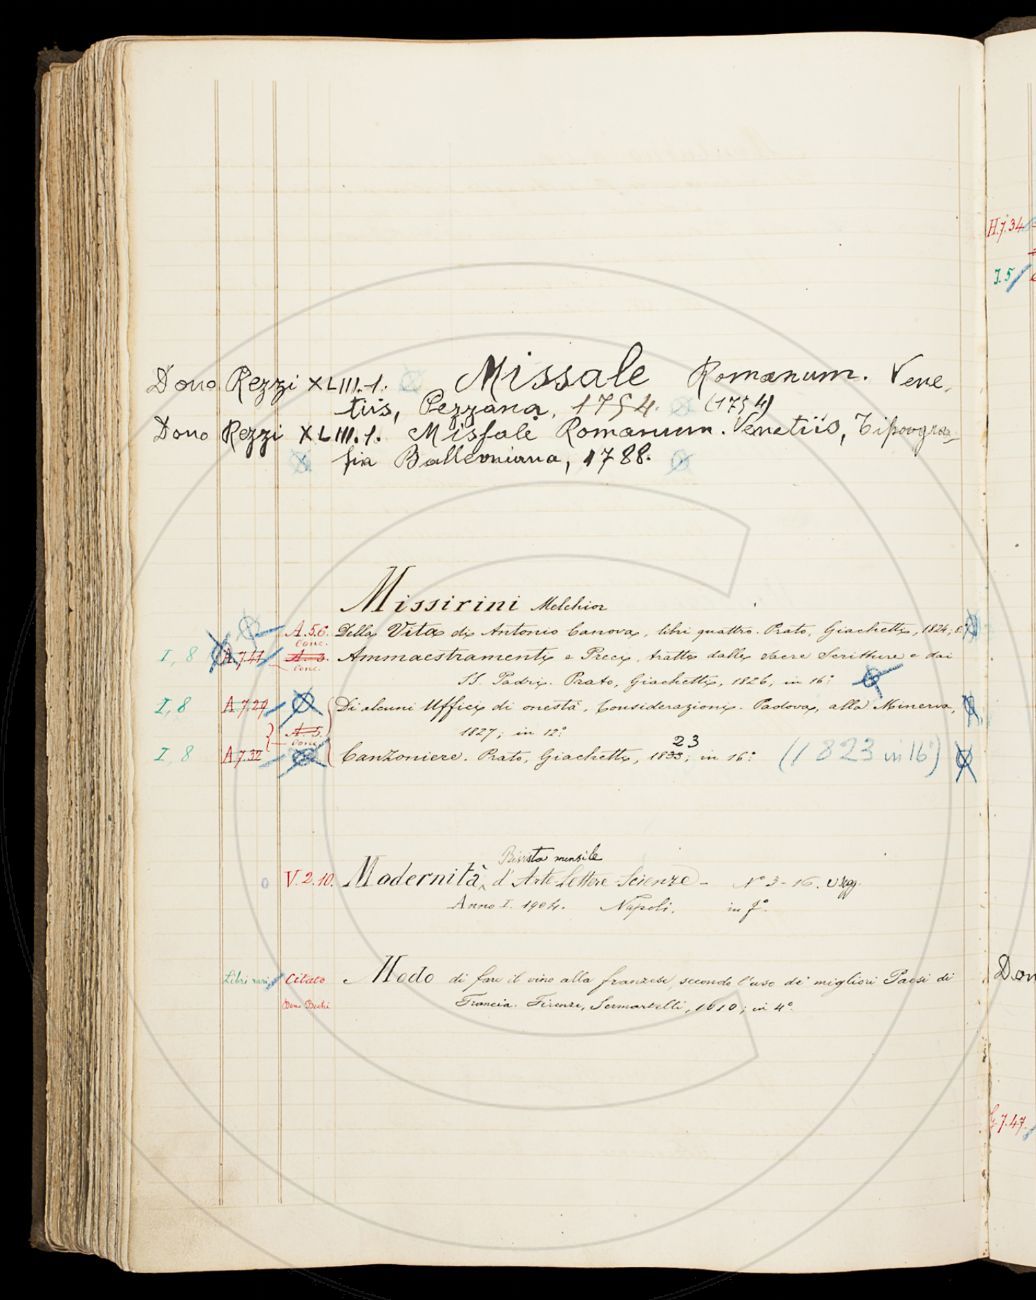 Dono Rezzi XLIII.1. Missale Romanum. Vene-
tiis, Pezzana, 1754. (1754)
Dono Rezzi XLIII.1. Missale Romanum. Venetiis, Tipogra-
fia Balleoniana, 1788.
Missirini Melchior
A.5.6. Della Vita di Antonio Canova, libri quattro. Prato, Giachetti, 1824, 8°
Conc.
I, 8 A.7.17 A.5. Ammaestramenti e Preci, tratti dalle sacre Scritture e dai
Conc.
SS. Padri. Prato, Giachetti, 1826, in 16°
I, 8 A.7.27 Di alcuni Uffici di onestà, Considerazioni. Padova, alla Minerva,
A.5. 1827; in 12°
Conc. 23
I, 8 A.7.32 Canzoniere. Prato, Giachetti, 1833; in 16° (1823 in 16°)
Rivista mensile
V.2.10. Modernità, d'Arte Lettere Scienze - N° 3-16.
Anno I. 1904. Napoli. in f°
Libri rari Citato Modo di fare il vino alla franzese secondo l'uso de' migliori Paesi di
Dono Francia. Firenze, Sermartelli, 1610; in 4°
H.7.34
I.5
Don
7.47.